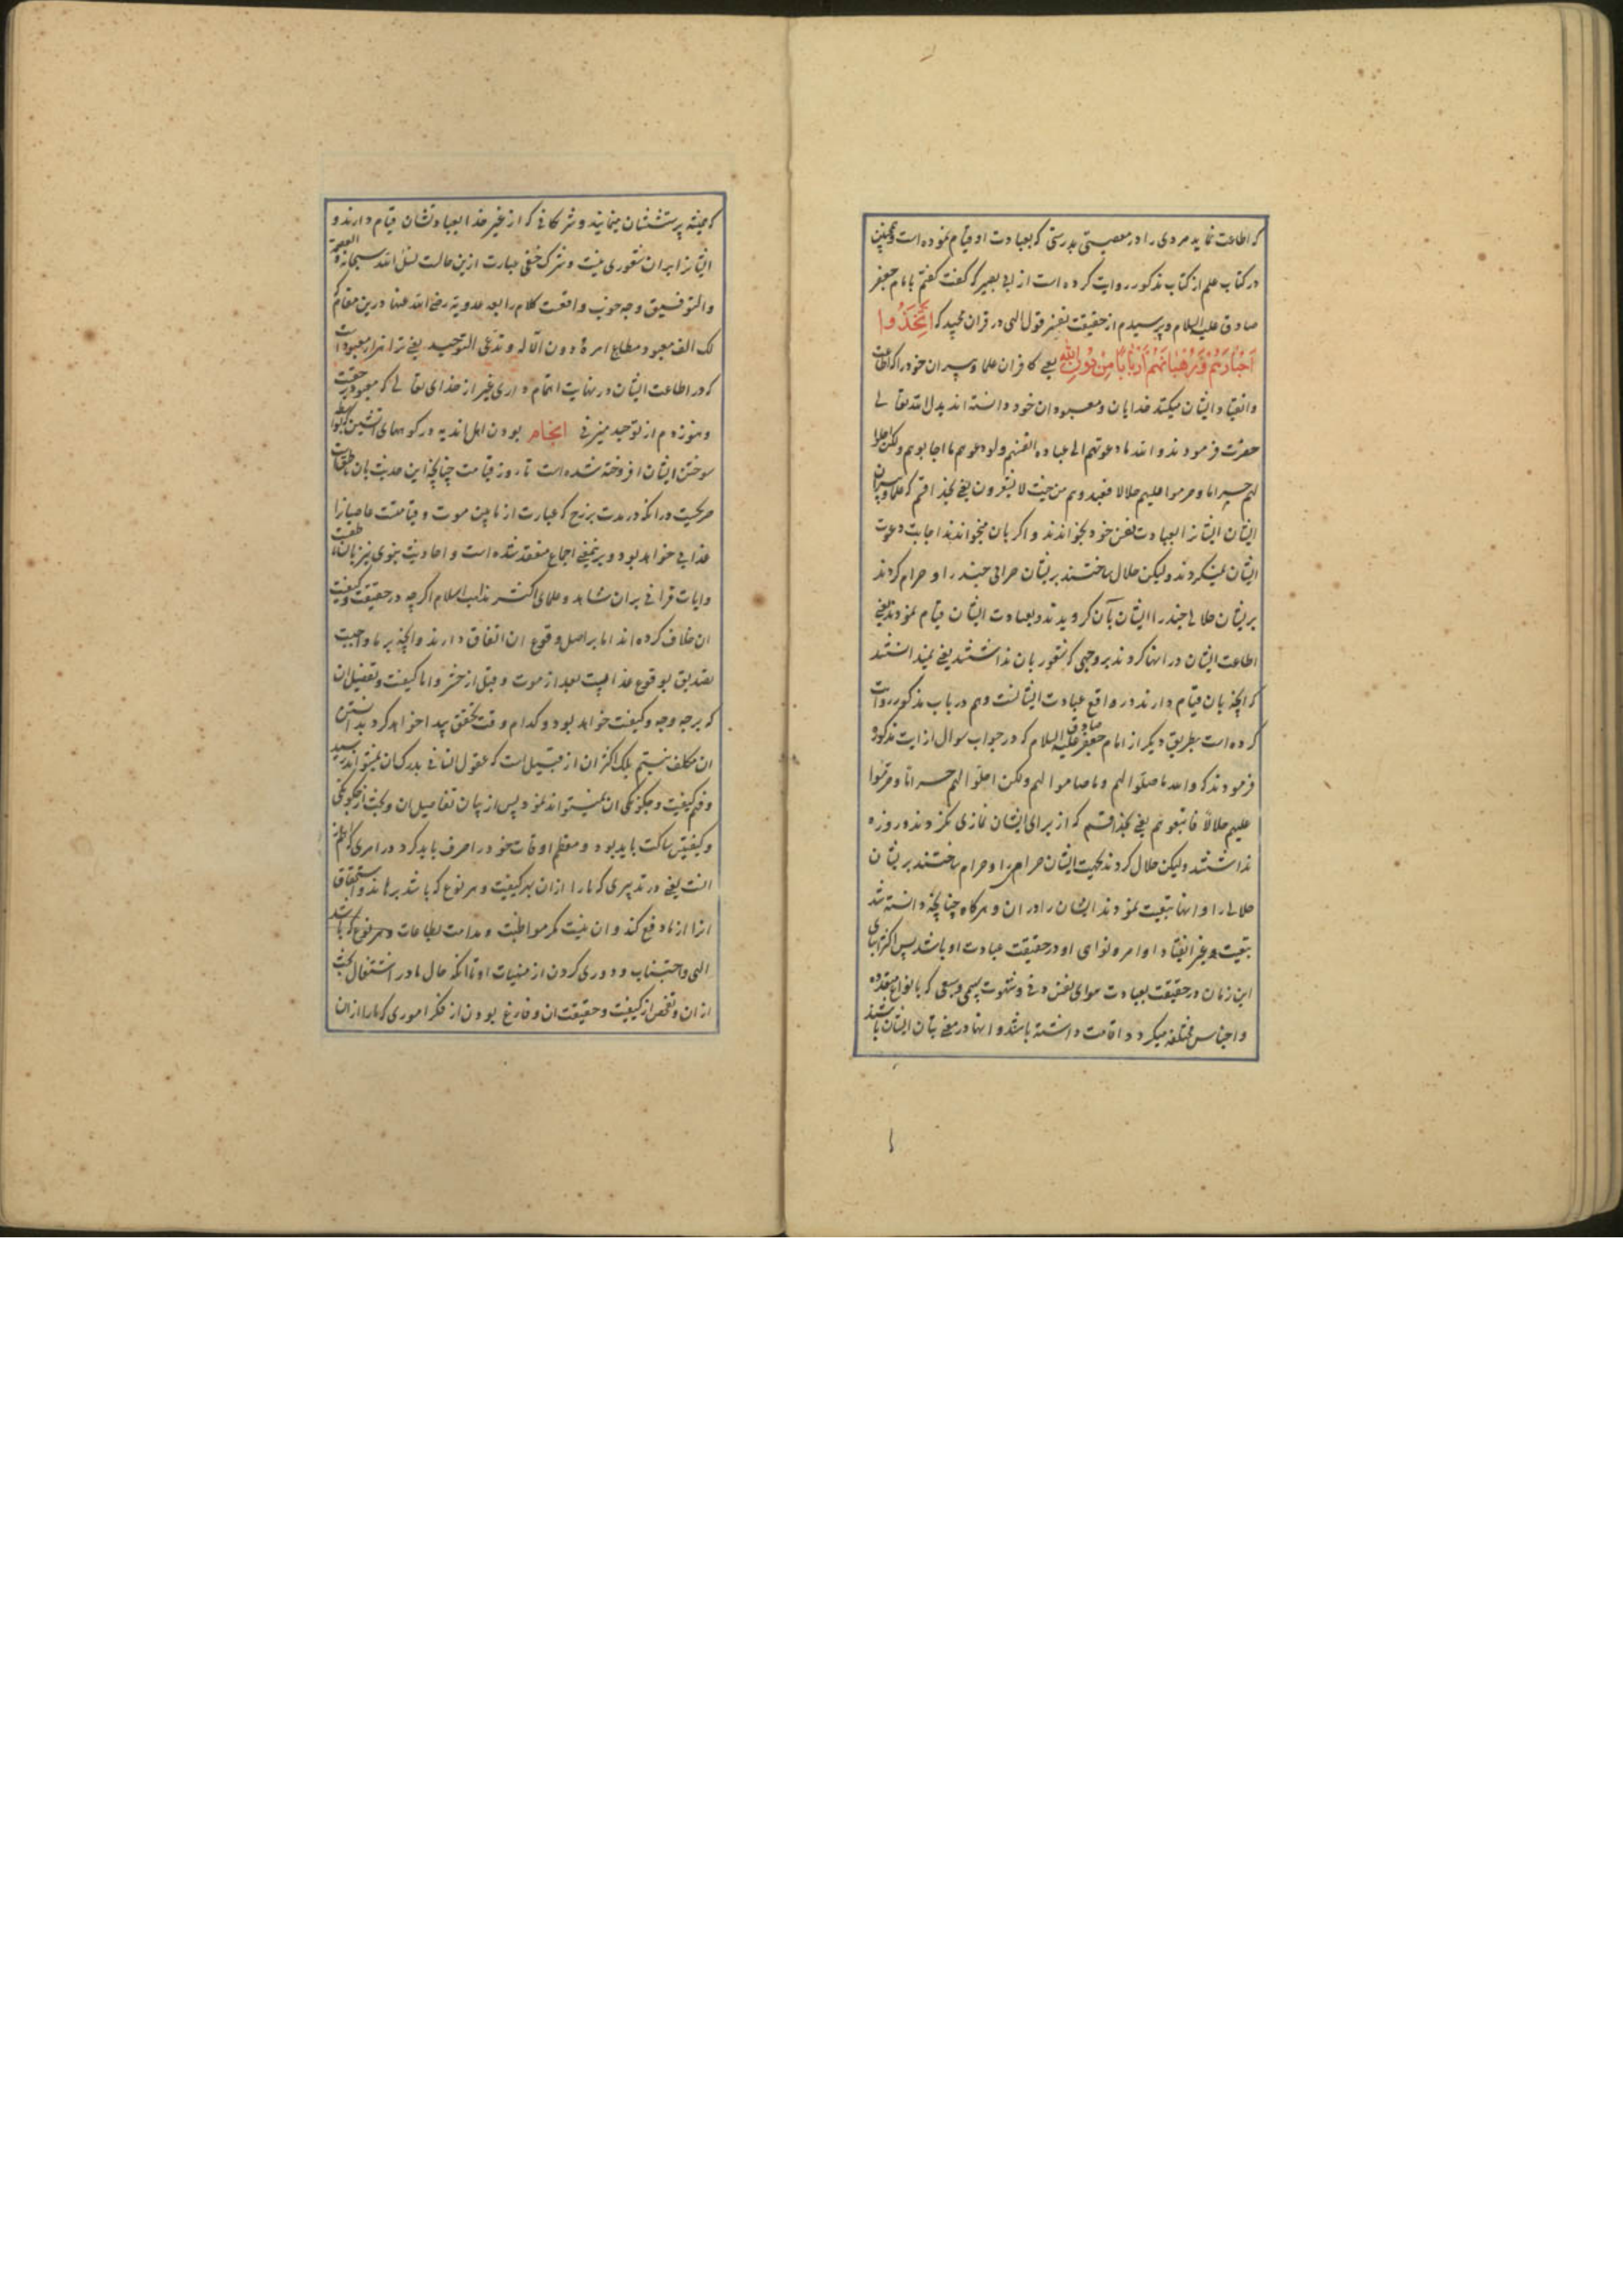 که اطاعت نماید مردی را در معصیتی بدرستی که بعبادت او قیام نموده است و همچنین
در کتاب علم از کتاب مذکور روایت کرده است از ابی بصیر که گفت گفتم بامام جعفر
صادق علیه السلام و پرسیدم از حقیقت تفسیر قول الهی در قران مجید که اِتَّخَذُوا
اَحْبَارَهُمْ وَرُهْبَانَهُمْ اَرْبَابًا مِنْ دُونِ اللهِ یعنی کافران علما و پیران خود را که اطاعت
و انقیاد ایشان میکنند خدایان و معبودان خود دانسته اند بدل الله تعالی
حضرت فرمودند و الله ما دعوتهم الی عباده انفسهم ولو دعوهم ما اجابوهم ولکن احلوا
لهم حراما و حرموا علیهم حلالا فعبدوهم من حیث لا یشعرون یعنی بخدا قسم که علما و پیران
ایشان ایشانرا بعبادت نفس خود نخواندند و اگر بان میخواندند اجابت دعوت
ایشان نمیکردند ولیکن حلال ساختند بریشان حرامی چند را و حرام کردند
بریشان حلالی چند را ایشان بآن کرویدند و بعبادت ایشان قیام نمودند یعنی
اطاعت ایشان در اینها کردند بر وجهی که شعور بان نداشتند یعنی نمیدانستند
که آنچه بان قیام دارند در واقع عبادت ایشانست و هم در باب مذکور روایت
کرده است بطریق دیگر از امام جعفر صادق علیه السلام که در جواب سوال از ایت مذکور
فرمودند که والله ما صلّوا لهم و ما صاموا لهم ولکن احلّوا لهم حراما و حرّموا
علیهم حلالاً فاتبعوهم یعنی بخدا قسم که از برای ایشان نمازی نکردند و روزه
نداشتند ولیکن حلال کردند بجهت ایشان حرام را و حرام ساختند بریشان
حلالی را و اینها تبعیت نمودند ایشان را در ان و هرگاه چنانچه دانسته شد
تبعیت و غیر انقیاد اوامر و نواهی او در حقیقت عبادت او باشد پس اکثر ابنای
این زمان در حقیقت بعبادت هوای نفس دنی و شهوت بهیمی و سبعی که بانواع متعدده
و اجناس مختلفه میکردد اقامت داشته باشند و اینها در معنی بتان ایشان باشند
که همیشه پرستششان مینمایند و شرکائی که از غیر خدا بعبادتشان قیام دارند و
ایشانرا بران شعوری نیست و شرک خفی عبارت ازین حالت نسئل الله سبحانه العصمة
والتوفیق وچه خوب واقعست کلام رابعه عدویه رضی الله عنها درین مقام که
لک الف معبود مطاع امره دون الاله و تدعی التوحید یعنی ترا هزار معبود است
که در اطاعت ایشان در نهایت اهتمام داری غیر از خدای تعالی که معبود حقیقت
و هنوز دم از توحید میزنی انجام بودن اهل اندیه در کوههای اتشین که بواسطه
سوختن ایشان افروخته شده است تا روز قیامت چنانچه این حدیث بان ناطقست
صریحست در انکه در مدت برزخ که عبارت از مابین موت و قیامتست عاصیانرا
عذابی خواهد بود و برینمعنی اجماع منعقد شده است و احادیث نبوی نیز بان ناطقست
و ایات قرانی بران شاهد و علمای اکثر مذاهب اسلام اگرچه در حقیقت و کیفیت
ان خلاف کرده اند اما بر اصل وقوع ان اتفاق دارند و آنچه بر ما واجبست
تصدیق بوقوع عذابیست بعد از موت و قبل از حشر و اما کیفیت و تفصیل ان
که بر چه وجه و کیفیت خواهد بود و کدام وقت تحقق پیدا خواهد کرد بدانستن
ان مکلف نیستیم بلکه اکثر ان از قبیل است که عقول انسانی بدرک ان نمیتواند رسید
و فهم کیفیت و چگونگی ان نمیتواند نمود پس از بیان تفاصیل ان و بحث از چگونگی
و کیفیتش ساکت باید بود و معظم اوقات خود را صرف باید کرد در امری که اعظم
انست یعنی در تدبیری که ما را از ان بهر کیفیت و هر نوع که باشد برهاند و استحقاق
انرا از ما دفع کند و ان نیست مگر مواظبت و مداومت بطاعات و هر نوع که باشد
الهی و اجتناب و دوری کردن از منهیات او تا انکه حال ما در اشتغال بحث
از ان و تفحص از کیفیت و حقیقت ان و فارغ بودن از فکر اموری که ما را از ان